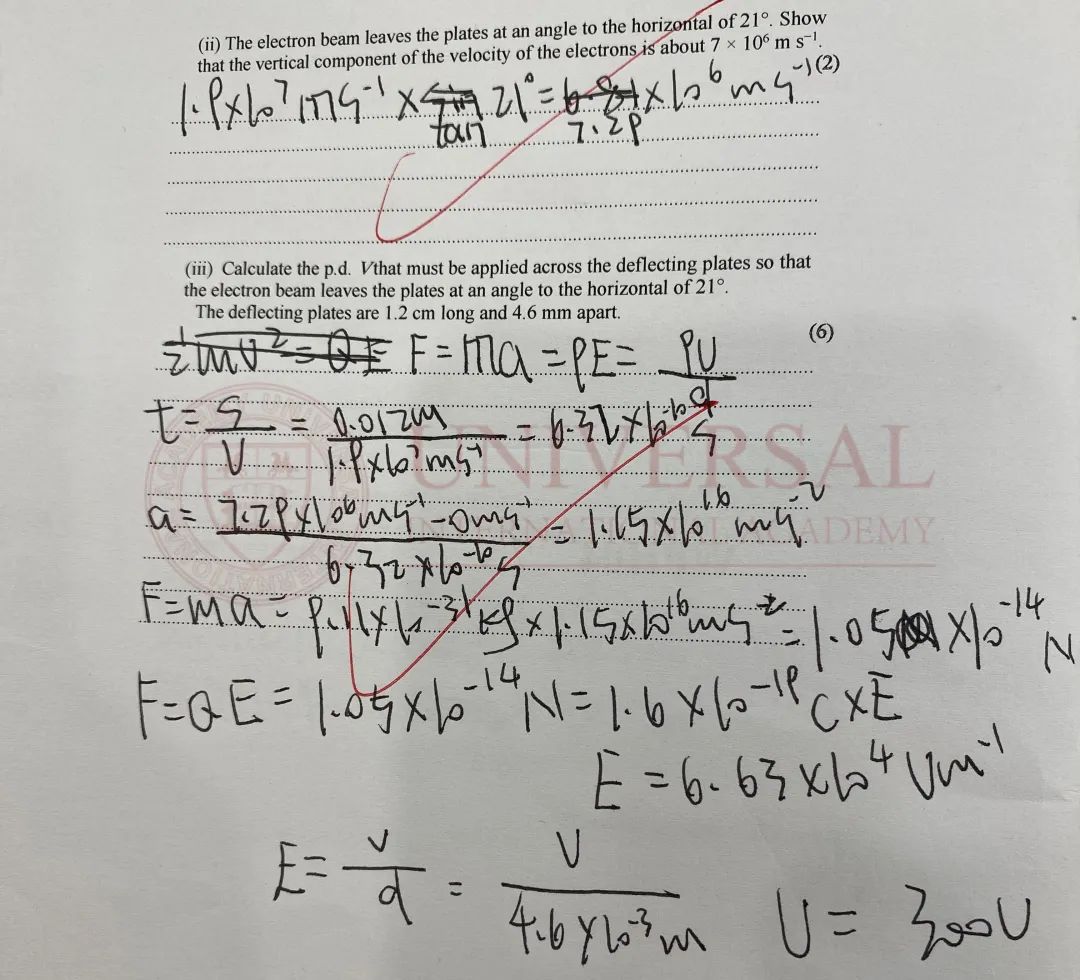 (ii) The electron beam leaves the plates at an angle to the horizontal of 21°. Show
that the vertical component of the velocity of the electrons is about 7 × 10⁶ m s⁻¹.
(2)
1.9×10⁷ ms⁻¹ × tan 21° = 7.29 ×10⁶ ms⁻¹
(iii) Calculate the p.d. Vthat must be applied across the deflecting plates so that
the electron beam leaves the plates at an angle to the horizontal of 21°.
The deflecting plates are 1.2 cm long and 4.6 mm apart.
(6)
½mv² = QE F = ma = qE = qV/d
t = s/v = 0.012m / 1.9×10⁷ms⁻¹ = 6.32×10⁻¹⁰ s
UNIVERSAL
a = 7.29×10⁶ms⁻¹ - 0ms⁻¹ / 6.32×10⁻¹⁰s = 1.15×10¹⁶ ms⁻²
ACADEMY
F = ma = 9.11×10⁻³¹ kg × 1.15×10¹⁶ ms⁻² = 1.05 ×10⁻¹⁴ N
F = QE = 1.05×10⁻¹⁴ N = 1.6×10⁻¹⁹ C × E
E = 6.63×10⁴ Vm⁻¹
E = V/d = V / 4.6×10⁻³m V = 300V